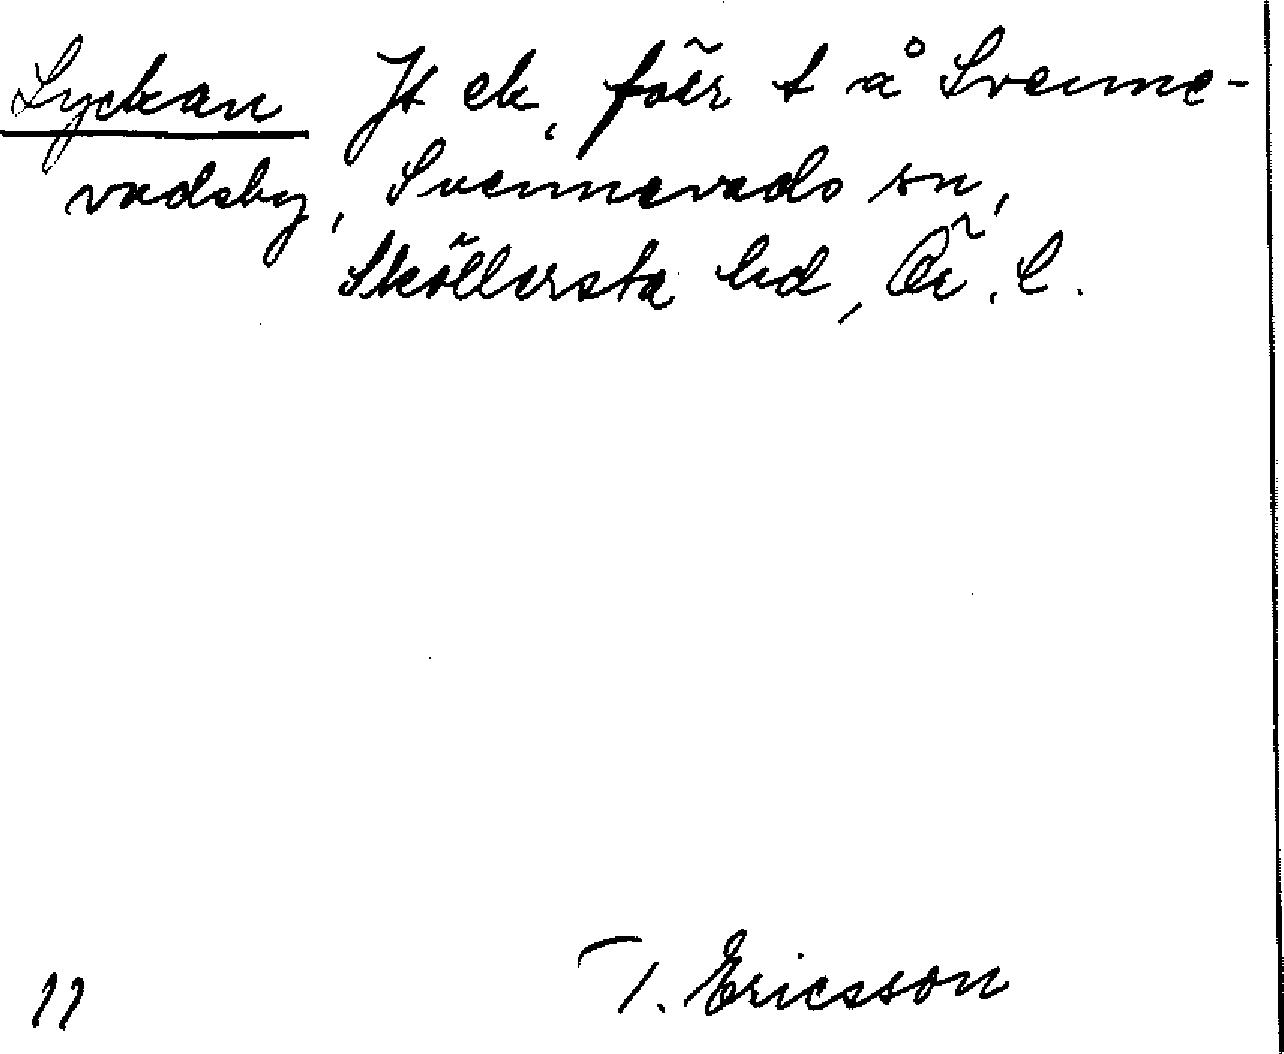 Lyckan Jt ek, förr t å Svenne-
vadsby, Svennevads sn,
Sköllersta hd, Ör. l.
T. Ericsson
11